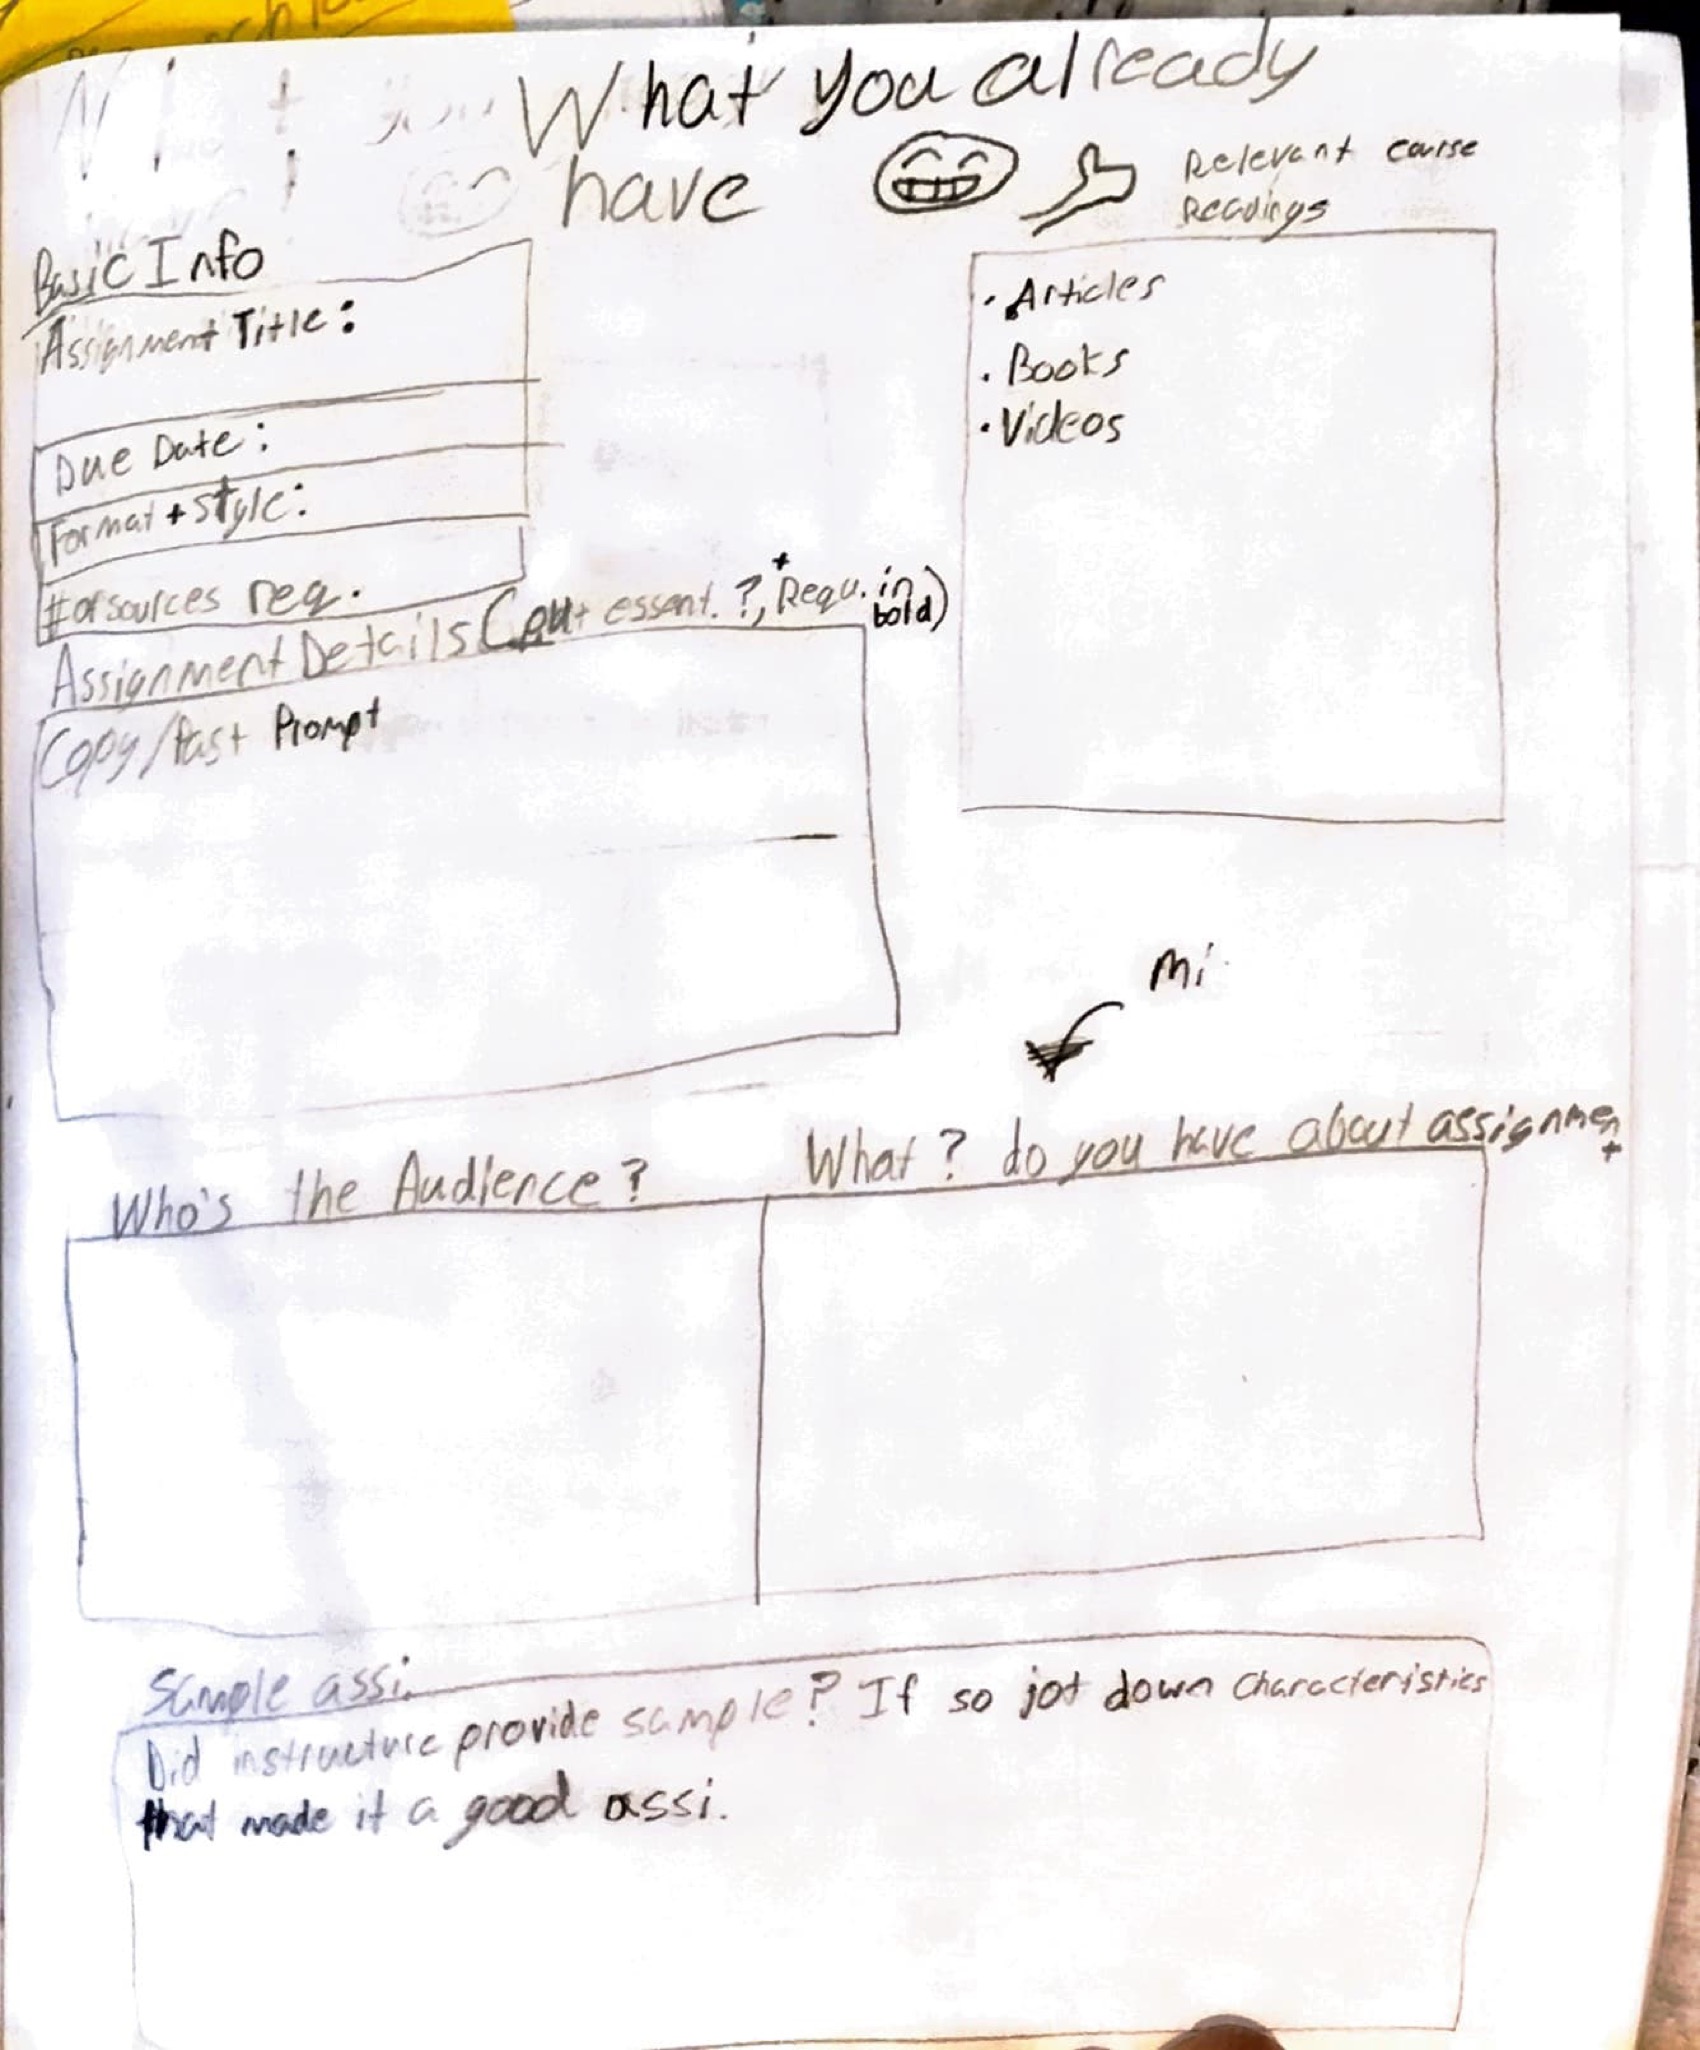 What you already
have
Relevant course
Readings
Basic Info
Assignment Title:
Due Date:
Format + Style:
# of sources req.
• Articles
• Books
• Videos
Assignment Details (put essent. ?, + Requ. in bold)
Copy/Past Prompt
Mi
Who's the Audience?
What? do you have about assignment
Sample assi.
Did instructure provide sample? If so jot down characteristics
that made it a good assi.